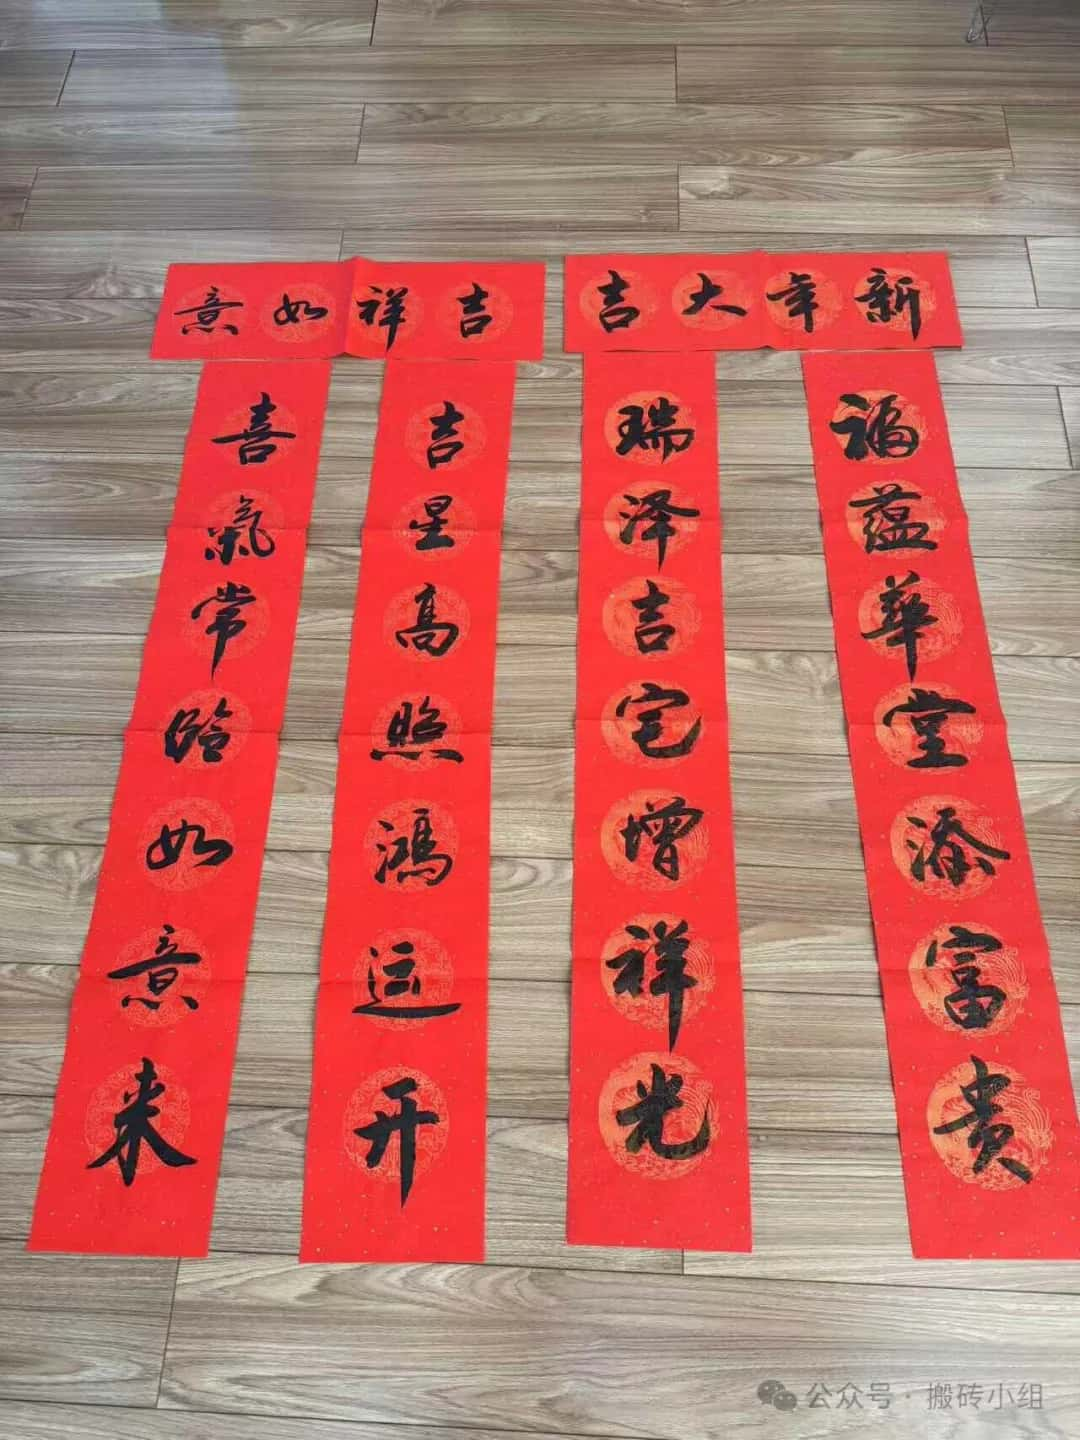 新年大吉
福蕴華堂添富贵
瑞泽吉宅增祥光
吉祥如意
吉星高照鸿运开
喜氣常临如意来
公众号·搬砖小组